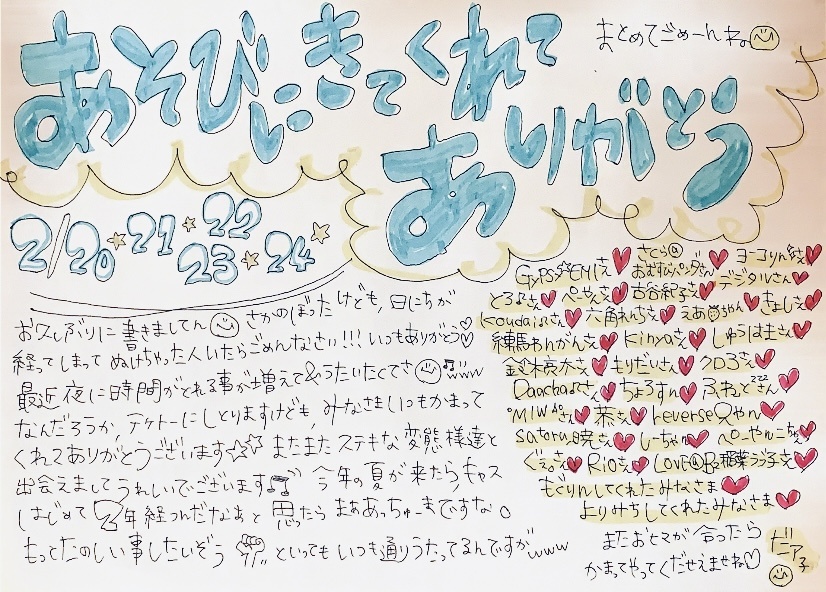 あそびにきてくれて
ありがとう
まとめてごめーんね。
2/20☆21☆22
23☆24☆
お久しぶりに書きましてん さかのぼったけども、日にちが
経ってしまって ぬけちゃった人いたらごめんなさい!!! いつもありがとう♡
最近夜に時間がとれる事が増えて うたいたくてさ♫www
なんだろうか、テケトーにしとりますけども、みなさまいつもかまって
くれてありがとうございます☆☆ またまたステキな変態様達と
出会えましてうれしいでございます♫ 今年の夏が来たら、キャス
はじめて2年経つんだなぁと思ったら まぁあっちゅーまですな。
もっとたのしい事したいぞう といってもいつも通りうたってるんですがwww
Gypsy☆EMIさん♥ さくら@おむすびパンダさん♥ ヨーコりんさん♥
とろ♪さん♥ ぺーやんさん♥ 古谷紀子さん♥ デジタルさん♥
Koudai♪さん♥ 六角れいちさん♥ えあちゃん♥ きよしさん♥
練馬わんがんさん♥ Kinyaさん♥ しゅうはまさん♥
鈴木京太さん♥ もりだいさん♥ クロろさん♥
Dancha♪さん♥ ちょろすけさん♥ ふねっとさん♥
°MIW°さん♥ 恭さん♥ reverseひゃん♥
satoru暁さん♥ しーちゃん♥
ぐぇ。さん♥ Rioさん♥
もぐりんしてくれたみなさま♥
よりみちしてくれたみなさま♥
またおヒマが合ったら
かまってやってくだせえませね♡